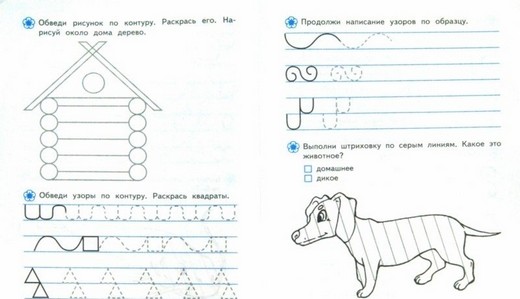 Обведи рисунок по контуру. Раскрась его. На-
рисуй около дома дерево.
Обведи узоры по контуру. Раскрась квадраты.
Продолжи написание узоров по образцу.
Выполни штриховку по серым линиям. Какое это
животное?
домашнее
дикое